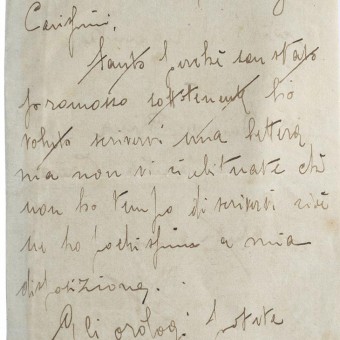 Carissimi,
Tanto perchè son stato
promosso sottotenente ho
voluto scrivervi una lettera
ma non vi ci abituate chè
non ho tempo di scrivervi cioè
ne ho pochissimo a mia
disposizione.
Gli orologi potete